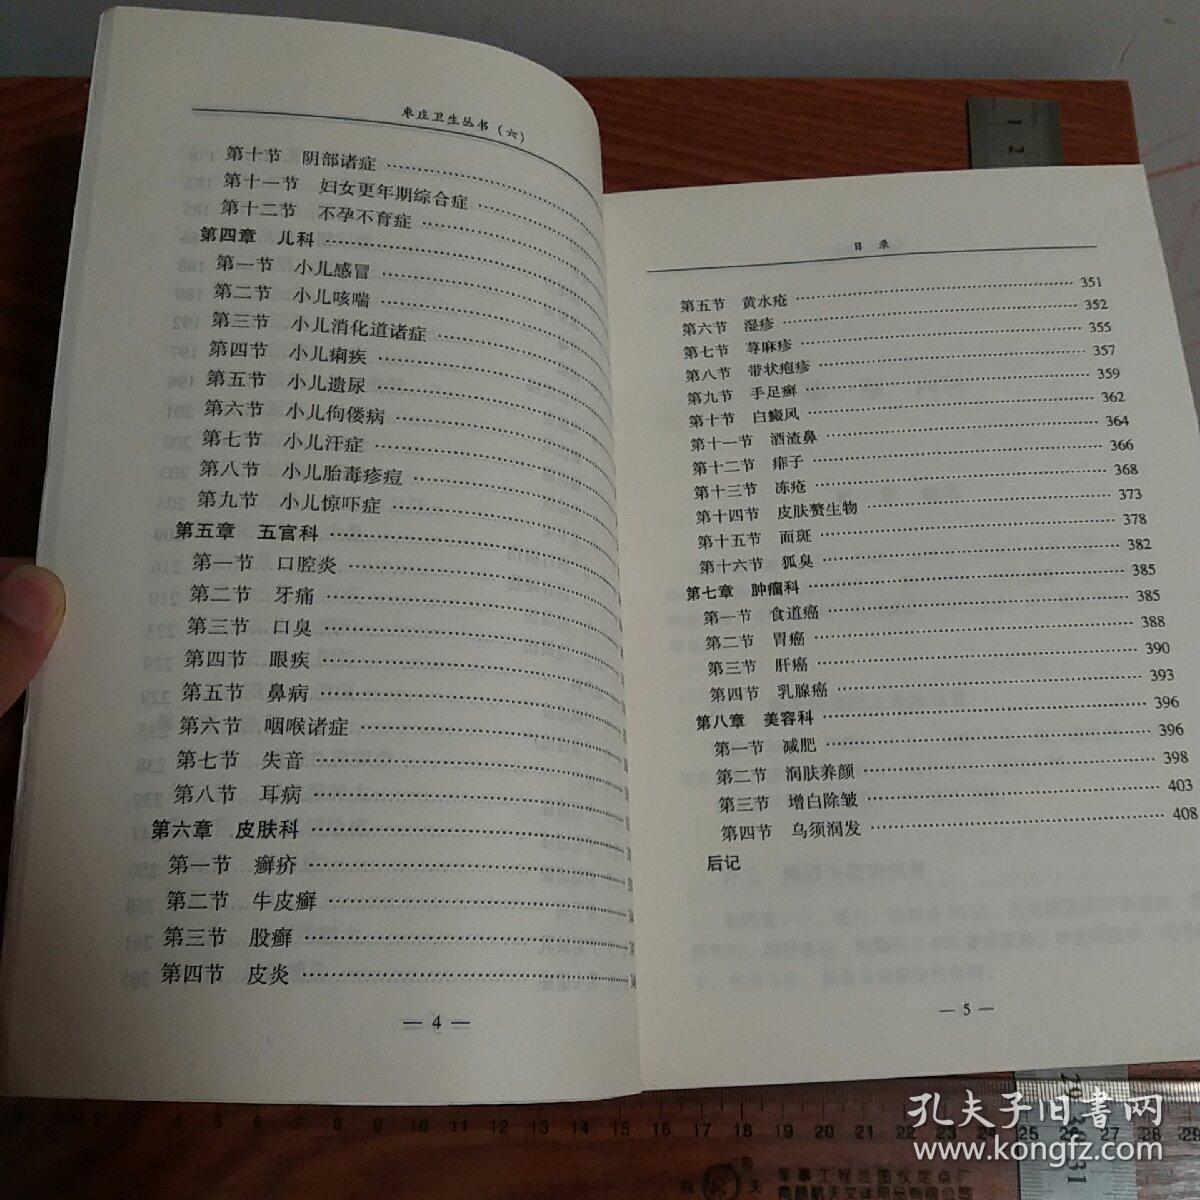 枣庄卫生丛书（六）
第十节 阴部诸症
第十一节 妇女更年期综合症
第十二节 不孕不育症
第四章 儿科
第一节 小儿感冒
第二节 小儿咳喘
第三节 小儿消化道诸症
第四节 小儿痢疾
第五节 小儿遗尿
第六节 小儿佝偻病
第七节 小儿汗症
第八节 小儿胎毒疹痘
第九节 小儿惊吓症
第五章 五官科
第一节 口腔炎
第二节 牙痛
第三节 口臭
第四节 眼疾
第五节 鼻病
第六节 咽喉诸症
第七节 失音
第八节 耳病
第六章 皮肤科
第一节 癣疥
第二节 牛皮癣
第三节 股癣
第四节 皮炎
— 4 —
目 录
第五节 黄水疮 351
第六节 湿疹 352
第七节 荨麻疹 355
第八节 带状疱疹 357
第九节 手足癣 359
第十节 白癜风 362
第十一节 酒渣鼻 364
第十二节 痱子 366
第十三节 冻疮 368
第十四节 皮肤赘生物 373
第十五节 面斑 378
第十六节 狐臭 382
第七章 肿瘤科 385
第一节 食道癌 385
第二节 胃癌 388
第三节 肝癌 390
第四节 乳腺癌 393
第八章 美容科 396
第一节 减肥 396
第二节 润肤养颜 398
第三节 增白除皱 403
第四节 乌须润发 408
后记
— 5 —
孔夫子旧书网
www.kongfz.com